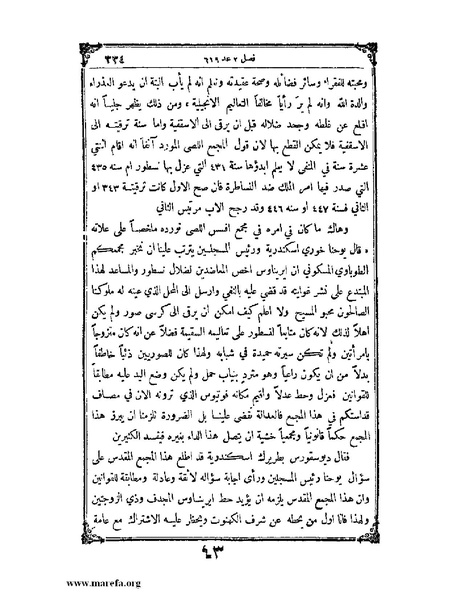 فصل ٢ عد ٦١٩ ٣٣٤
ومحبته للفقراء وسائر فضائله وصحة عقيدته ونعلم انه لم يأب البتة ان يدعو العذراء
والدة الله وانه لم ير رأياً مخالفاً التعاليم الانجيلية، ومن ذلك يظهر جلياً انه
اقلع عن غلطه وجحد ضلاله قبل ان يرقى الى الاسقفية واما سنة ترقيته الى
الاسقفية فلا يمكن القطع بها لان قول المجمع اللصي المورد آنفاً انه اقام اثنتي
عشرة سنة في المنفى لا يعلم ابدؤها سنة ٤٣١ التي عزل بها نسطور ام سنة ٤٣٥
التي صدر فيها امر الملك ضد النساطرة فان صح الاول كانت ترقيتة ٤٤٣ او
الثاني فسنة ٤٤٧ او سنه ٤٤٦ وقد رجح الاب مرتينس الثاني
وهاك ما كان في امره في مجمع افسس اللصي نورده ملخصاً على علاته
، قال يوحنا خوري اسكندرية ورئيس المسجلين يترتب علينا ان نخبر مجمعكم
الطوباوي المسكوني ان ايريناوس اخص المعاضدين لضلال نسطور والمساعد لهذا
المبتدع على نشر غوايته قد قضي عليه بالنفي وارسل الى المحل الذي عينه له ملوكنا
الصالحون محبو المسيح ولا اعلم كيف امكن ان يرقى الى كرسي صور ولم يكن
اهلاً لذلك لانه كان متابعاً لنسطور على تعاليمه السقيمة فضلاً عن انه كان متزوجاً
بامرأتين ولم تكن سيرته حميدة في شبابه ولهذا كان للصوريين ذئباً خاطفاً
بدلاً من ان يكون راعياً وهو متردٍ بثياب حمل ولم يكن وضع اليد عليه مطابقاً
للقوانين فعزل وحط عدلاً واقيم مكانه فوتيوس الذي ترونه الان في مصاف
قداستكم في هذا المجمع فالعدالة تقضي علينا بل الضرورة تلزمنا ان يبرق هذا
المجمع حكماً قانونياً ومجمعياً خشية ان يتصل هذا الداء بغيره فيفسد الكثيرين
فقال ديوسقورس بطريرك اسكندرية قد اطلع هذا المجمع المقدس على
سؤال يوحنا رئيس المسجلين ورأى اجابة سؤاله لائقة وعادلة ومطابقة للقوانين
وان هذا المجمع المقدس يلزمه ان يؤيد حط ايريناوس المجدف وذي الزوجتين
ولهذا فانا اول من يحطه عن شرف الكهنوت ويحظر عليه الاشتراك مع عامة
٤٣
www.marefa.org